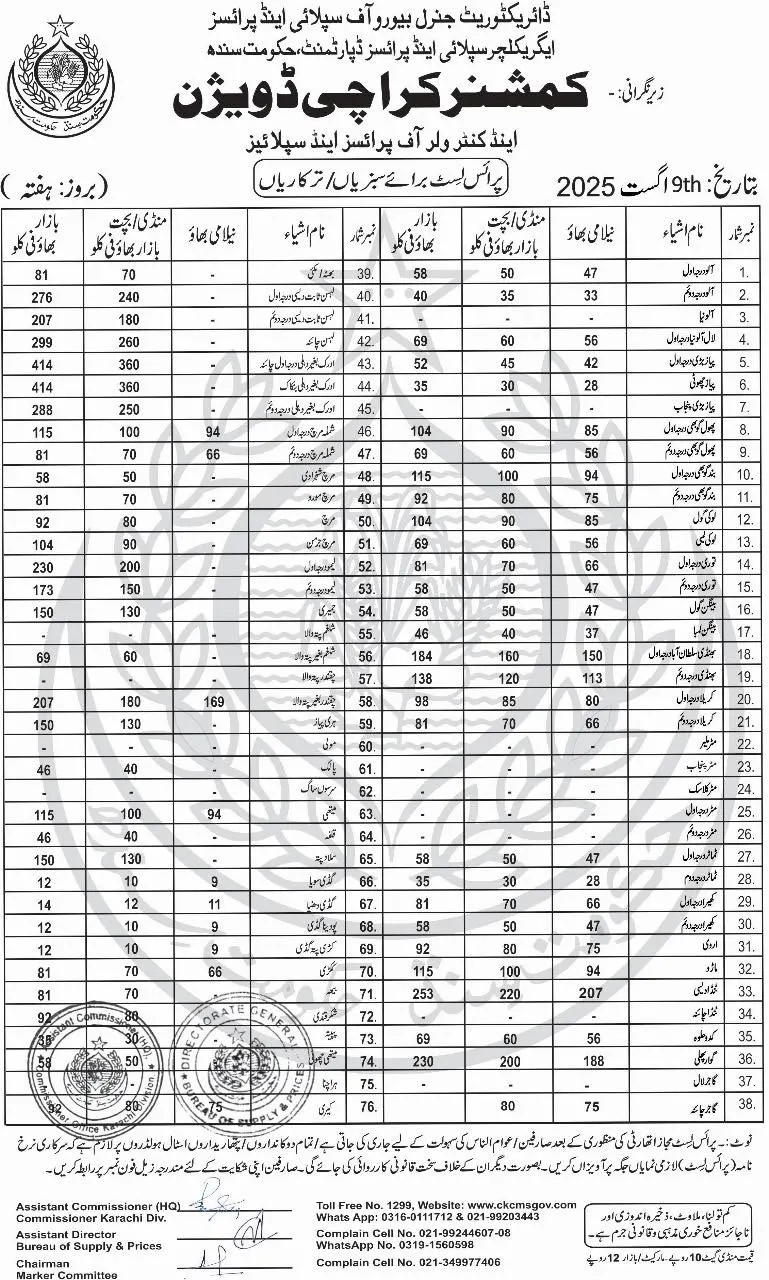 ڈائریکٹوریٹ جنرل بیورو آف سپلائی اینڈ پرائسز
ایگریکلچر سپلائی اینڈ پرائسز ڈپارٹمنٹ، حکومت سندھ
زیر نگرانی: -
کمشنر کراچی ڈویژن
اینڈ کنٹرولر آف پرائسز اینڈ سپلائیز
تاریخ: 9th اگست 2025
پرائس لسٹ برائے سبزیاں / ترکاریاں
(بروز: ہفتہ)
نمبر شمار نام اشیاء نیلامی بھاؤ منڈی/بچت بازار بھاؤ فی کلو بازار بھاؤ فی کلو نمبر شمار نام اشیاء نیلامی بھاؤ منڈی/بچت بازار بھاؤ فی کلو بازار بھاؤ فی کلو
1. آلو درجہ اول 47 50 58 39. - 70 81
2. آلو درجہ دوئم 33 35 40 40. لہسن ثابت دیسی درجہ اول - 240 276
3. آلو نیا - - - 41. لہسن ثابت دیسی درجہ دوئم - 180 207
4. لال آلو نیا درجہ اول 56 60 69 42. لہسن چائنہ - 260 299
5. پیاز بڑی درجہ اول 42 45 52 43. ادرک بغیر دھلی درجہ اول چائنہ - 360 414
6. پیاز چھوٹی 28 30 35 44. ادرک بغیر دھلی بنکاک - 360 414
7. پیاز بڑی پنجاب - - - 45. ادرک بغیر دھلی درجہ دوئم - 250 288
8. پھول گوبھی درجہ اول 85 90 104 46. شملہ مرچ درجہ اول 94 100 115
9. پھول گوبھی درجہ دوئم 56 60 69 47. شملہ مرچ درجہ دوئم 66 70 81
10. بند گوبھی درجہ اول 94 100 115 48. مرچ شہزادی - 50 58
11. بند گوبھی درجہ دوئم 75 80 92 49. مرچ - 70 81
12. لوکی گول 85 90 104 50. مرچ - 80 92
13. لوکی لمبی 56 60 69 51. مرچ - 90 104
14. توری درجہ اول 66 70 81 52. لیمو درجہ اول - 200 230
15. توری درجہ دوئم 47 50 58 53. لیمو درجہ دوئم - 150 173
16. بینگن گول 47 50 58 54. - 130 150
17. بینگن لمبا 37 40 46 55. شلغم پتہ والا - - -
18. بھنڈی سلطان آباد درجہ اول 150 160 184 56. شلغم بغیر پتہ والا - 60 69
19. بھنڈی درجہ دوئم 113 120 138 57. چقندر پتہ والا - - -
20. کریلا درجہ اول 80 85 98 58. چقندر بغیر پتہ والا 169 180 207
21. کریلا درجہ دوئم 66 70 81 59. ہری پیاز - 130 150
22. مٹر ملیر - - - 60. مولی - - -
23. مٹر پنجاب - - - 61. پالک - 40 46
24. مٹر کلاسک - - - 62. سرسوں ساگ - - -
25. مٹر درجہ اول - - - 63. میتھی 94 100 115
26. مٹر درجہ دوئم - - - 64. - 40 46
27. ٹماٹر درجہ اول 47 50 58 65. سلاد پتہ - 130 150
28. ٹماٹر درجہ دوم 28 30 35 66. گڈی سویا 9 10 12
29. کھیرا درجہ اول 66 70 81 67. گڈی دھنیا 11 12 14
30. کھیرا درجہ دوئم 47 50 58 68. پودینا گڈی 9 10 12
31. اروی 75 80 92 69. کڑی پتہ گڈی 9 10 12
32. 94 100 115 70. ککڑی 66 70 81
33. ٹنڈا دیسی 207 220 253 71. - 70 81
34. ٹنڈا چائنہ - - - 72. شکرقندی - 80 92
35. کدو حلوہ 56 60 69 73. پپیتہ - 30 35
36. گوار پھلی 188 200 230 74. میتھی چھوٹی - 50 58
37. گاجر لال - - - 75. ہرا چنا - - -
38. گاجر چائنہ 75 80 76. کیری 75 80 92
نوٹ: - پرائس لسٹ مجاز اتھارٹی کی منظوری کے بعد صارفین / عوام الناس کی سہولت کے لیے جاری کی جاتی ہے / تمام دوکانداروں / پتھاریداروں اسٹال ہولڈروں پر لازم ہے کہ سرکاری نرخ
نامہ (پرائس لسٹ) لازمی نمایاں جگہ پر آویزاں کریں۔ بصورت دیگر ان کے خلاف سخت قانونی کارروائی کی جائے گی۔ صارفین اپنی شکایت کے لئے مندرجہ زیل فون نمبر پر رابطہ کریں۔
Assistant Commissioner (HQ)
Commissioner Karachi Div.
Assistant Director
Bureau of Supply & Prices
Chairman
Marker Committee
Toll Free No. 1299, Website: www.ckcmsgov.com
Whats App: 0316-0111712 & 021-99203443
Complain Cell No. 021-99244607-08
WhatsApp No. 0319-1560598
Complain Cell No. 021-349977406
کم تولنا، ملاوٹ، ذخیرہ اندوزی اور
ناجائز منافع خوری مذہبی و قانونی جرم ہے۔
قیمت منڈی گیٹ 10 روپے - مارکیٹ/بازار 12 روپے
Assistant Commissioner (HQ),
Commissioner Office Karachi Division
DIRECTORATE GENERAL
BUREAU OF SUPPLY & PRICES
حکومت سندھ